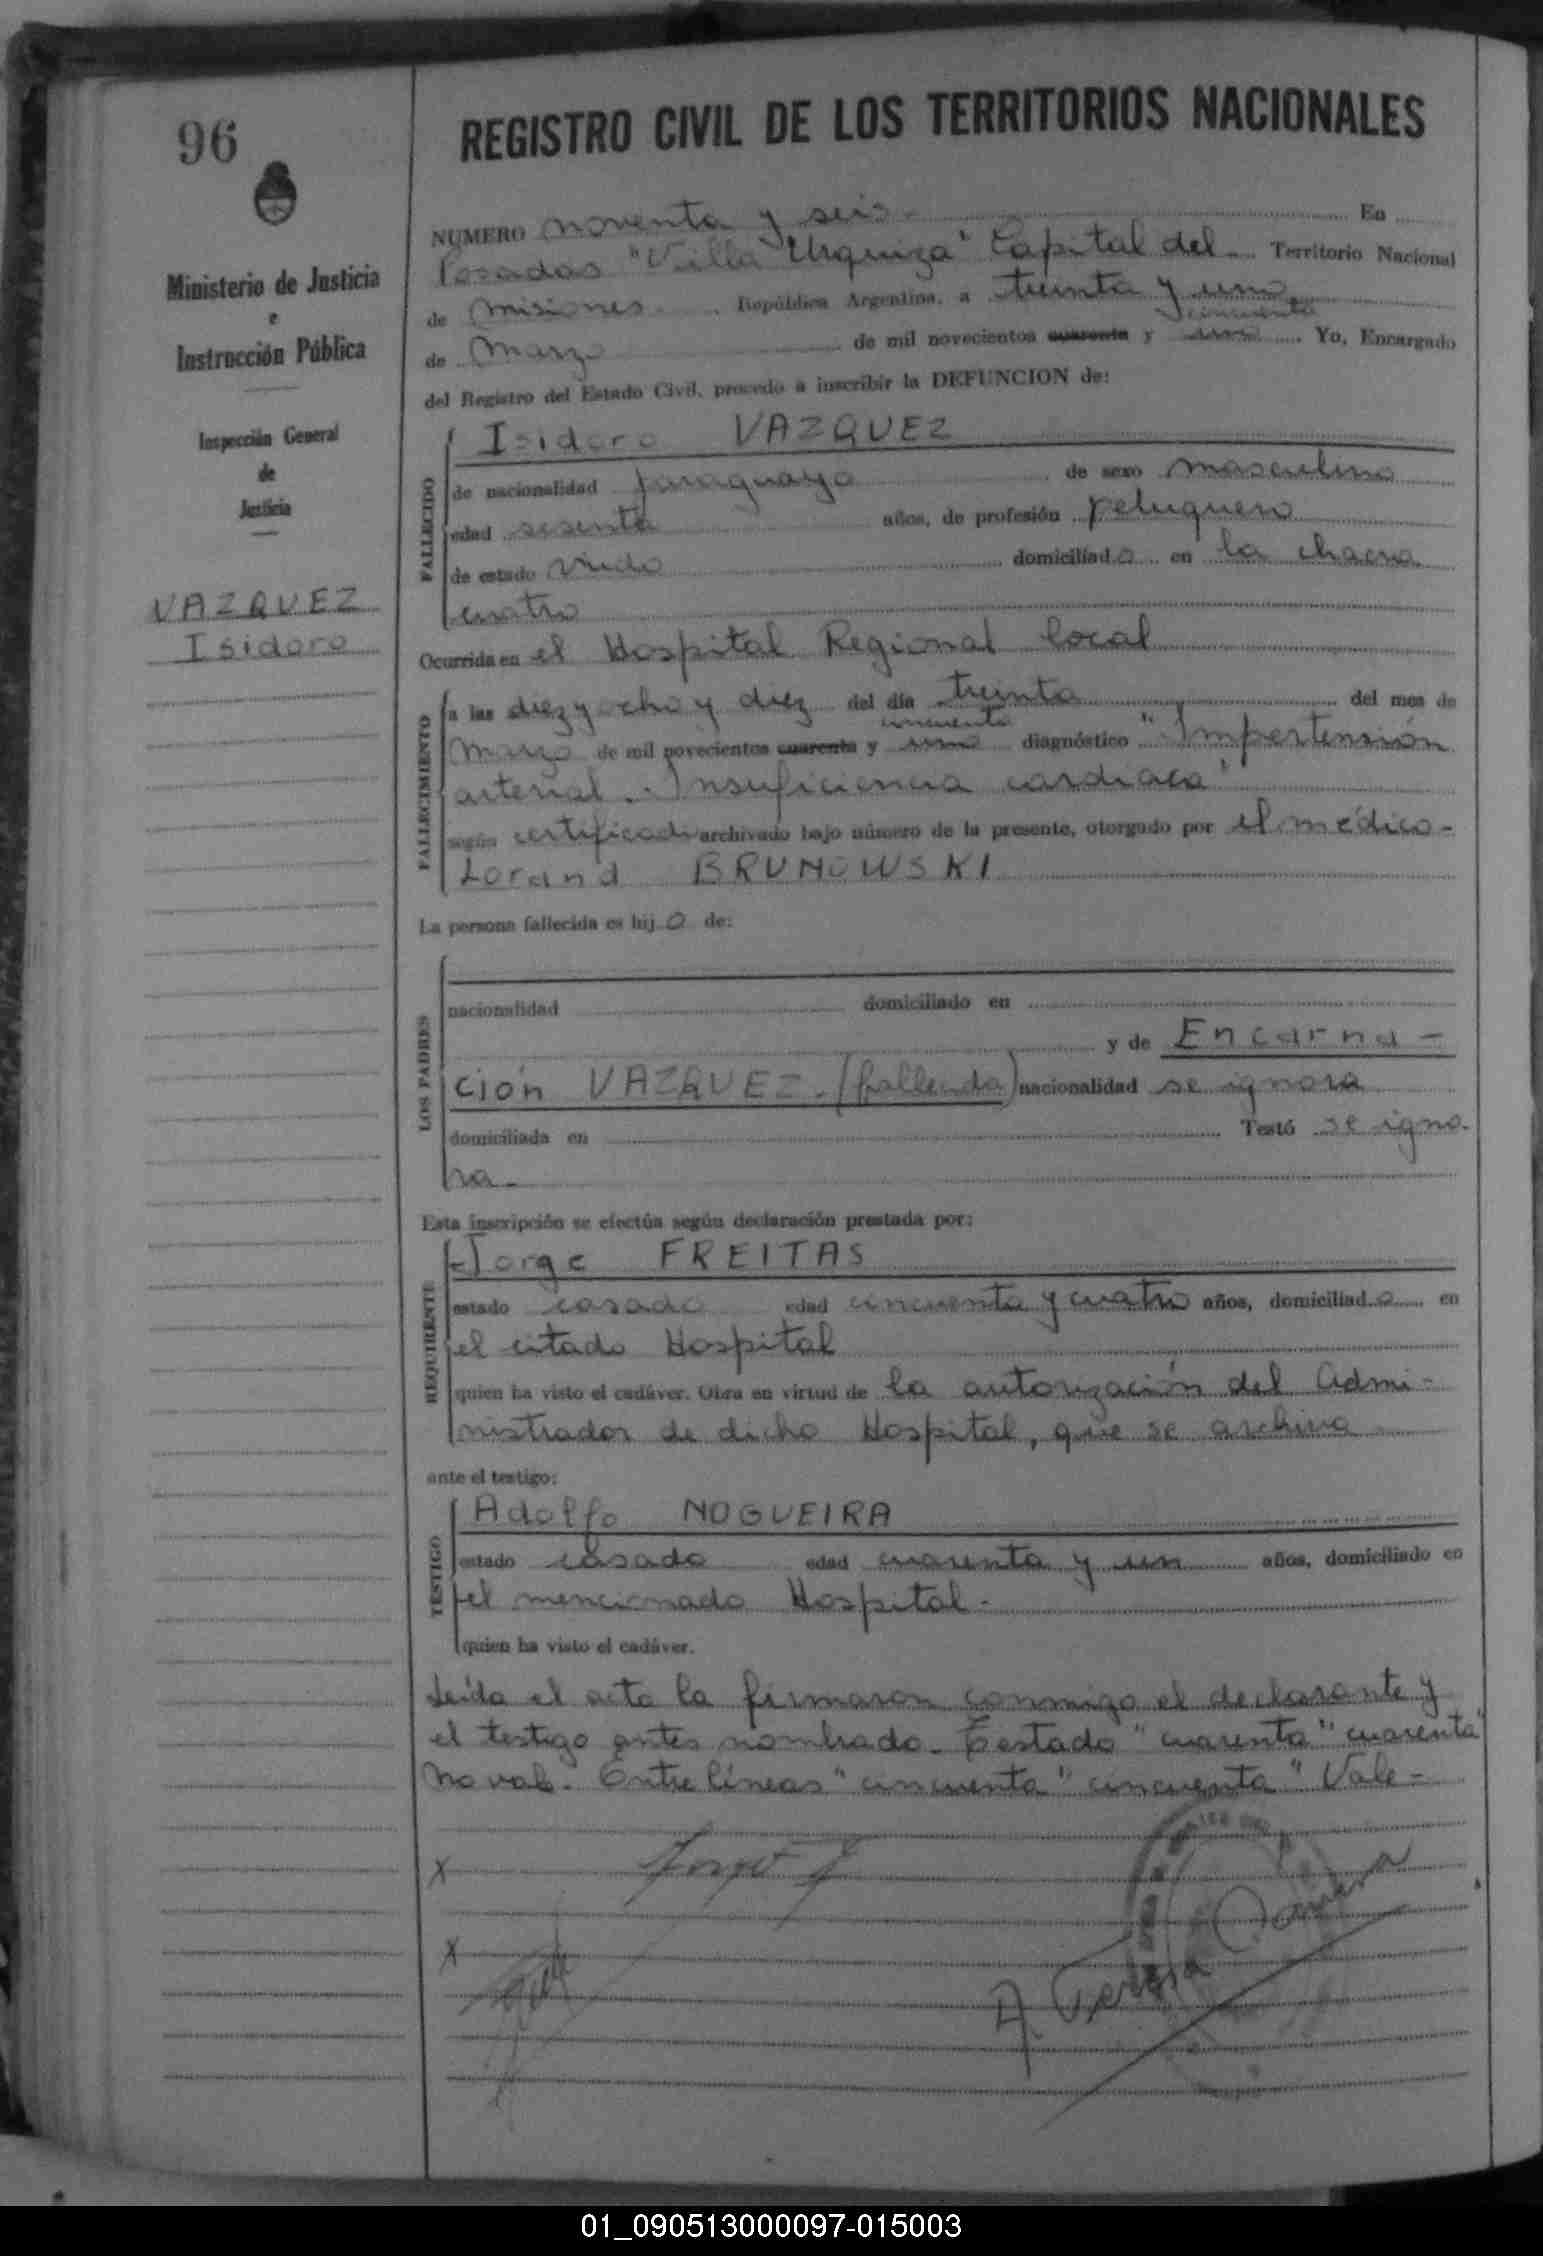 96
REGISTRO CIVIL DE LOS TERRITORIOS NACIONALES
Ministerio de Justicia
e
Instrucción Pública
Inspección General
de
Justicia
VAZQUEZ
Isidoro
NUMERO noventa y seis.- En
Posadas "Villa Urquiza" Capital del Territorio Nacional
de Misiones República Argentina, a treinta y uno
cincuenta
de Marzo de mil novecientos cuarenta y uno Yo, Encargado
del Registro del Estado Civil, procedo a inscribir la DEFUNCION de:
FALLECIDO
Isidoro VAZQUEZ
de nacionalidad paraguaya de sexo masculino
edad sesenta años, de profesión peluquero
de estado viudo domiciliado en la chacra
cuatro
Ocurrida en el Hospital Regional local
FALLECIMIENTO
a las diez y ocho y diez del día treinta del mes de
cincuenta
Marzo de mil novecientos cuarenta y uno diagnóstico "Impertensión
arterial.- Insuficiencia cardiaca"
según certificado archivado bajo número de la presente, otorgado por el médico-
Lorand BRUNOWSKI
La persona fallecida es hijo de:
LOS PADRES
nacionalidad domiciliado en
y de Encarna-
ción VAZQUEZ.(fallecida) nacionalidad se ignora
domiciliada en Testó se igno-
ra.-
Esta inscripción se efectúa según declaración prestada por:
REQUIRENTE
Jorge FREITAS
estado casado edad cincuenta y cuatro años, domiciliado en
el citado Hospital
quien ha visto el cadáver. Obra en virtud de la autorización del Admi-
nistrador de dicho Hospital, que se archiva
ante el testigo:
TESTIGO
Adolfo NOGUEIRA
estado casado edad cuarenta y un años, domiciliado en
el mencionado Hospital.-
quien ha visto el cadáver.
Leída el acta la firmaron conmigo el declarante y
el testigo antes nombrado.- Testado "cuarenta" "cuarenta"
No vale.- Entre líneas "cincuenta" "cincuenta" Vale-
X
X
01_090513000097-015003